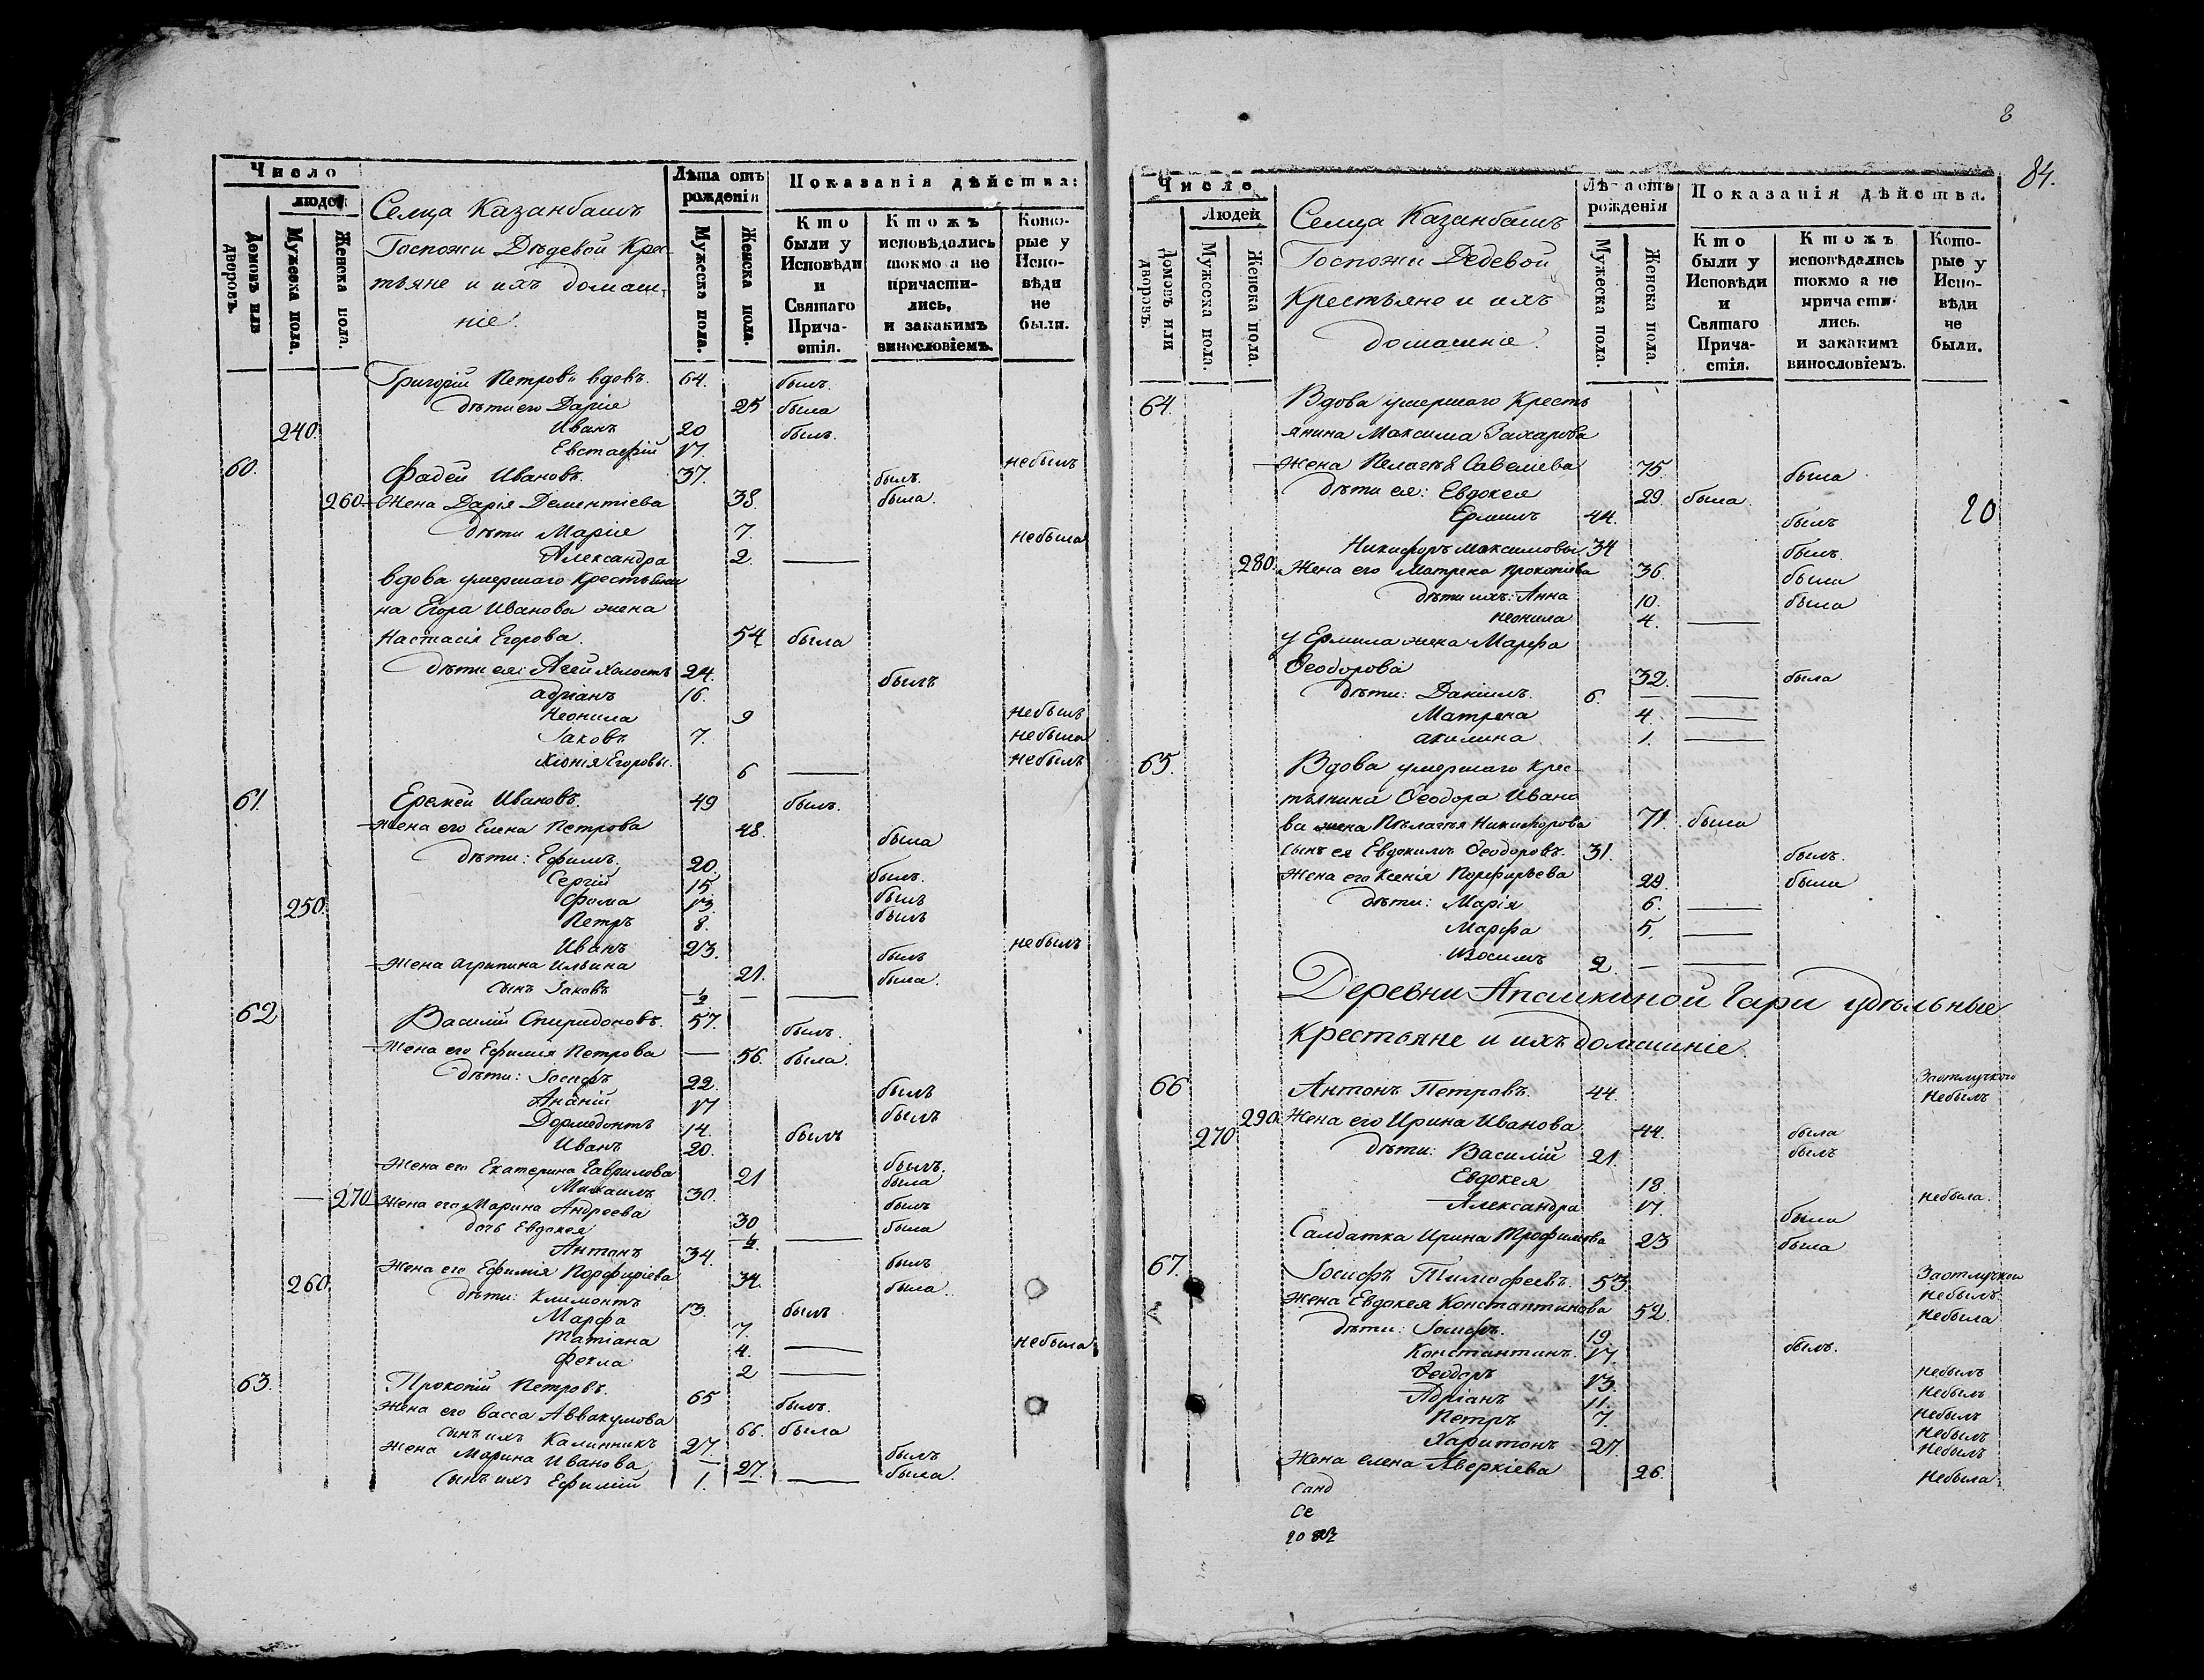 Число
людей
Домовъ или дворовъ.
Мужеска пола.
Женска пола.
Селца Казанбашъ
Госпожи Дѣдевой Крес-
тьяне и ихъ домаш-
ніе.
Лѣта отъ рожденія
Мужеска пола.
Женска пола.
Показанія дѣйства:
Кто были у Исповѣди и Святаго Прича- стія.
Ктожъ исповѣдались токмо а не причасти- лись, и закакимъ винословіемъ.
Кото- рые у Испо- вѣди не были.
Григорій Петровъ вдовъ. 64. былъ.
дѣти его Дарія 25 была
240. Иванъ 20 былъ.
Евстафій 17. небылъ
60. Фадей Ивановъ. 37. былъ.
260. Жена Дарія Дементіева 38. была.
дѣти Марія 7. небыла
Александра 2. —
вдова умершаго крестьяни
на Егора Иванова жена
Настасія Егорова. 54 была
дѣти ея: Агей холостъ 24. былъ
адріанъ 16. небылъ
Неонила 9 небыла
Іаковъ 7. небылъ
Хіонія Егоровы. 6 —
61. Еремей Ивановъ. 49 былъ.
Жена его Елена Петрова 48. была
дѣти: Ефимъ. 20. былъ.
Сергій 15 былъ
250. Фома 13. былъ
Петръ 8. небылъ
Иванъ 23. былъ
Жена Агрипина Ильина 21. была.
сынъ Іаковъ ½ — —
62 Василій Спиридоновъ. 57. былъ.
Жена его Ефимія Петрова — 56. была.
дѣти: Іосифъ 22. былъ
Ананій 17 былъ
Дормедонтъ 14. былъ
Иванъ 20. былъ.
Жена его Екатерина Гаврилова 21 была
Михаилъ 30. былъ
270 Жена его Марина Андреева 30 была
дочь Евдокея ½. —
Антонъ 34. былъ
Жена его Ефимія Порфиріева 34. была.
260. дѣти: Климонтъ 13. былъ
Марфа 7. небыла
Татіана 4. —
Фекла 2 —
63. Прокопій Петровъ. 65 былъ.
Жена его васса Аввакумова 66. была
сынъ ихъ Калинникъ 27. былъ
Жена Марина Иванова — 27. была.
сынъ ихъ Ефимій 1. — —
8
84.
Число
Людей
Домовъ или дворовъ.
Мужеска пола.
Женска пола.
Селца Казанбашъ
Госпожи Дедевой
Крестьяне и ихъ
домашніе.
рожденія
Мужеска пола.
Женска пола.
Показанія дѣйства.
Кто были у Исповѣди и Святаго Прича- стія.
Ктожъ исповѣдались токмо а не прича сти- лись. и закакимъ винословіемъ.
Кото- рые у Испо- вѣди не были.
64. Вдова умершаго Кресть
янина Максима Захарова
Жена Пелагѣя Савелиева 75. была
дѣти ея: Евдокея 29. была.
Ермилъ 44. былъ
20
Никифоръ максимовы 34 былъ.
280. Жена его Матрена прокопіева 36. была
дѣти ихъ: Анна 10. была
Неонила 4. —
у Ермила жена Марфа
Ѳеодорова 32. была
дѣти: Даніилъ. 6. — —
Матрена 4. —
акилина 1. —
65. Вдова умершаго Крес-
тьянина Ѳеодора Ивано
ва жена Пѣлагѣя Никифорова 71. была
сынъ ея Евдокимъ Ѳеодоровъ. 31. былъ.
Жена его Ксенія Порфирьева 29. была
дѣти: Марія 6. —
Марфа 5. —
Изосимъ 2. — —
Деревни Апалкиной Гари удѣльные
крестьяне и ихъ домашніе.
66 Антонъ Петровъ. 44. Заотлучкою Небылъ
290. Жена его Ирина Иванова 44. была
270 дѣти: Василій 21. былъ
Евдокея 18. небыла.
Александра 17. была
Салдатка Ирина Трофимова 23 была
67. Іосифъ Тимофеевъ. 53. Заотлучкою небылъ.
Жена Евдокея Константинова 52. Небыла
дѣти: Іосифъ. 19. былъ.
Константинъ. 17. небылъ
Ѳеодоръ 13. небылъ
Адріанъ 11. небылъ
Петръ 7. небылъ
Харитонъ 27 Небылъ
Жена елена Аверкіева 26. Небыла
Санд
Се